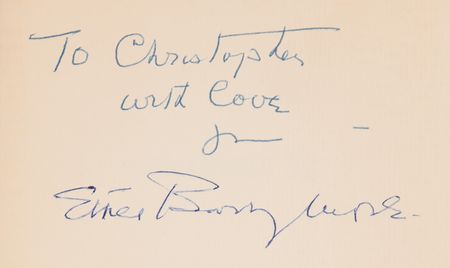 To Christopher
with love
from —
Ethel Barrymore.